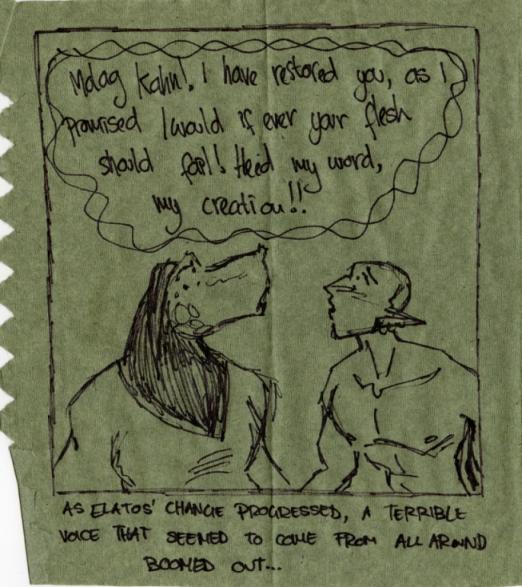 Molag Kahn!, I have restored you, as I
promised I would if ever your flesh
should fail! Heid my word,
my creation!!
AS ELATOS' CHANGE PROGRESSED, A TERRIBLE
VOICE THAT SEEMED TO COME FROM ALL AROUND
BOOMED OUT...